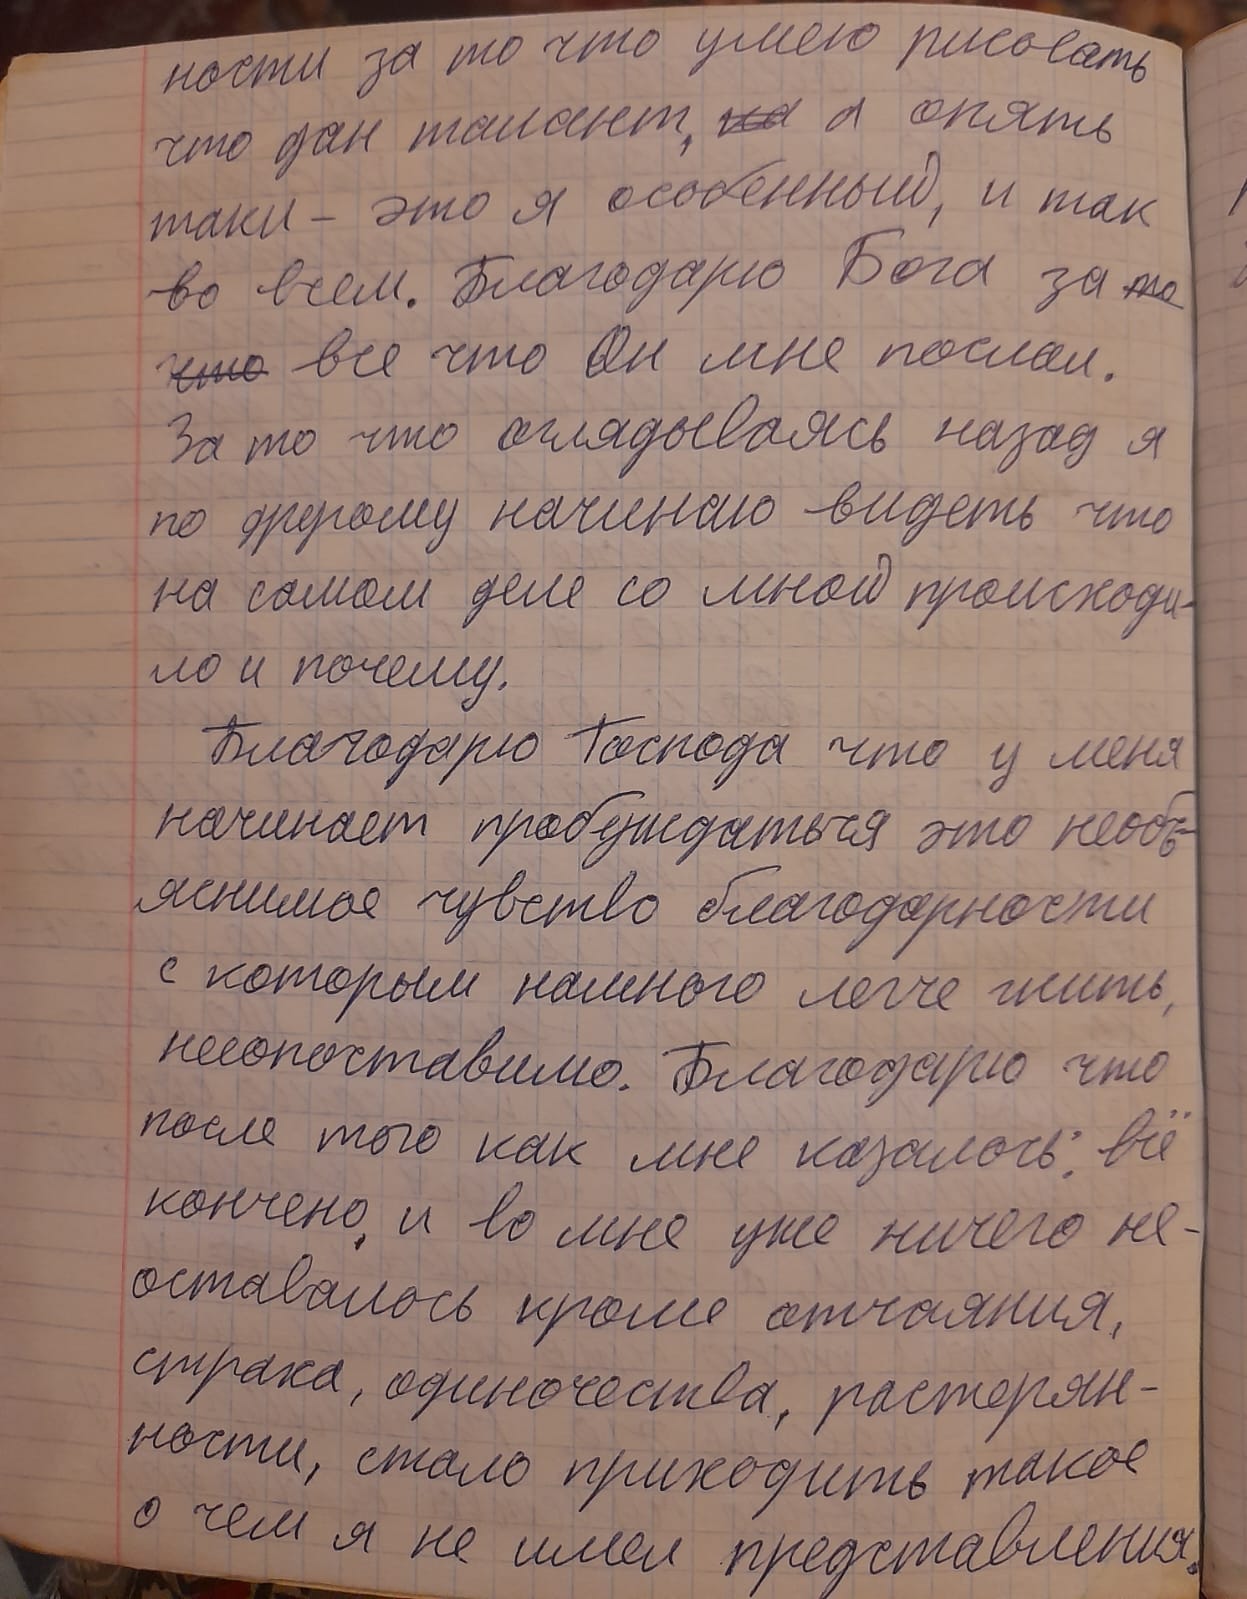 ности за то что умею рисовать
что дан талант, а опять
таки – это я особенный, и так
во всем. Благодарю Бога за то
что все что Он мне послал.
За то что оглядываясь назад я
по другому начинаю видеть что
на самом деле со мной происходи-
ло и почему.
Благодарю Господа что у меня
начинает пробуждаться это необъ-
яснимое чувство благодарности
с которым намного легче жить,
несопоставимо. Благодарю что
после того как мне казалось: всё
кончено, и во мне уже ничего не-
оставалось кроме отчаяния,
страха, одиночества, растерян-
ности, стало приходить такое
о чем я не имел представления.